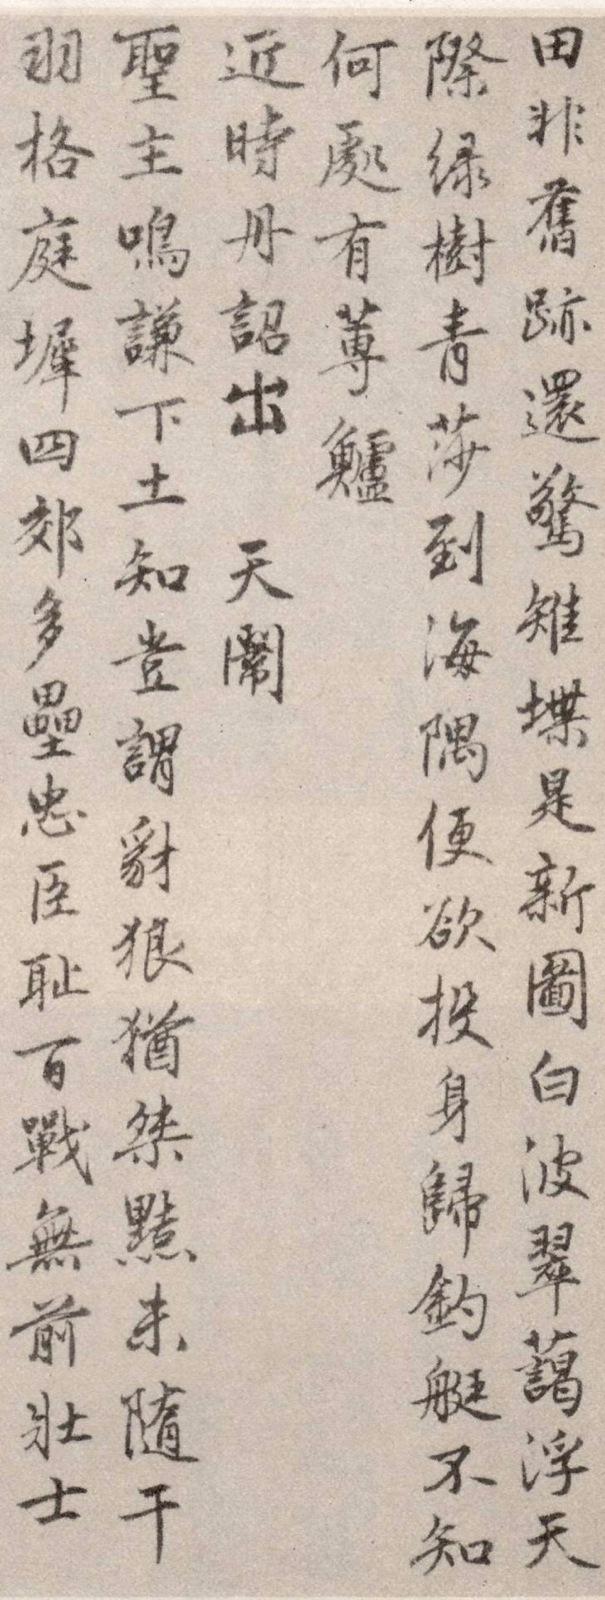 田非舊跡還驚雉堞是新圖白波翠藹浮天
際緑樹青莎到海隅便欲投身歸釣艇不知
何處有蓴鱸
近時丹詔出 天閽
聖主鳴謙下土知豈謂豺狼猶桀黠未隨干
羽格庭墀四郊多壘忠臣恥百戰無前壯士